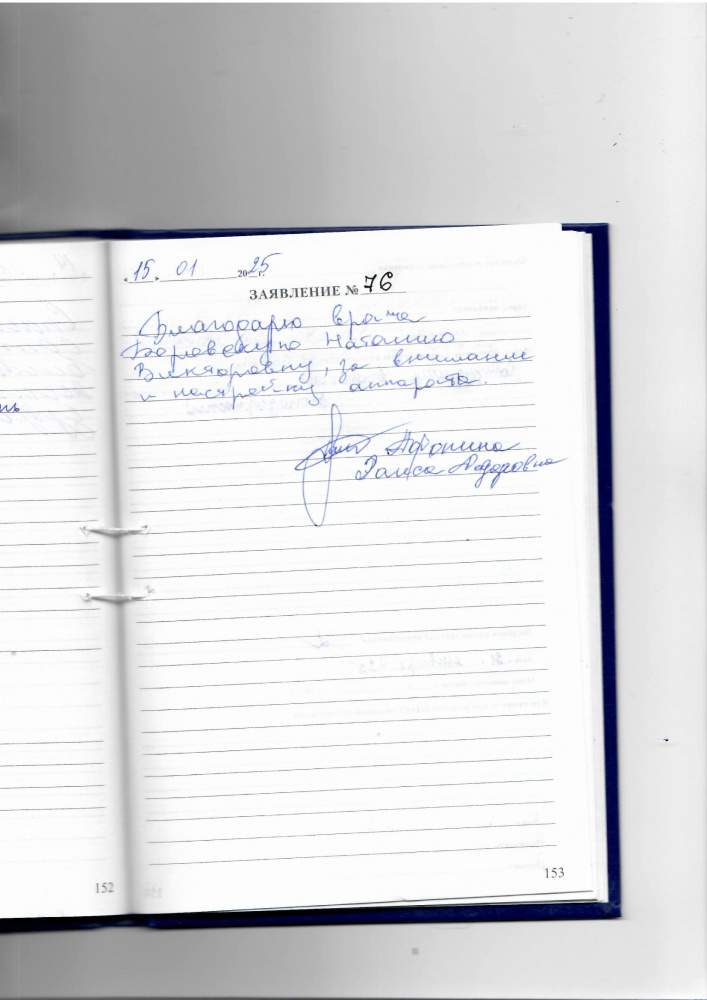 " 15 " 01 2025 г.
ЗАЯВЛЕНИЕ № 76
Благодарю врача
Наталию
Викторовну, за внимание
и настройку аппарата.
Афонина
Раиса Федоровна
152
153